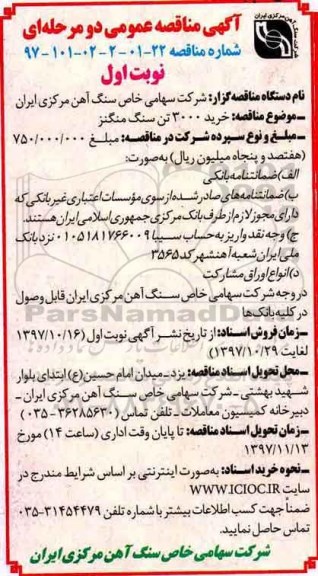 آگهی مناقصه عمومی دو مرحله‌ای
شماره مناقصه ۲۲-۰۱-۲-۰۲-۱۰۱-۹۷
نوبت اول
شرکت سنگ آهن مرکزی ایران
نام دستگاه مناقصه‌گزار: شرکت سهامی خاص سنگ آهن مرکزی ایران
ـ موضوع مناقصه: خرید ۳۰۰۰ تن سنگ منگنز
ـ مبلغ و نوع سپرده شرکت در مناقصه: مبلغ ۷۵۰/۰۰۰/۰۰۰
(هفتصد و پنجاه میلیون ریال) به‌صورت:
الف) ضمانتنامه بانکی
ب) ضمانتنامه‌های صادر شده از سوی مؤسسات اعتباری غیر بانکی که
دارای مجوز لازم از طرف بانک مرکزی جمهوری اسلامی ایران هستند.
ج) وجه نقد واریز به حساب سیبا ۰۱۰۵۱۸۱۷۶۶۰۰۹ نزد بانک
ملی ایران شعبه آهنشهر کد ۳۵۶۵
د) انواع اوراق مشارکت
در وجه شرکت سهامی خاص سنگ آهن مرکزی ایران قابل وصول
در کلیه بانک‌ها
ـ زمان فروش اسناد: از تاریخ نشر آگهی نوبت اول (۱۳۹۷/۱۰/۱۶)
لغایت (۱۳۹۷/۱۰/۲۹)
ـ محل تحویل اسناد مناقصه: یزد ـ میدان امام حسین(ع) ابتدای بلوار
شهید بهشتی ـ شرکت سهامی خاص سنگ آهن مرکزی ایران ـ
دبیرخانه کمیسیون معاملات ـ تلفن تماس (۳۶۲۸۵۶۳۰ - ۰۳۵)
ـ زمان تحویل اسناد مناقصه: تا پایان وقت اداری (ساعت ۱۴) مورخ
۱۳۹۷/۱۱/۱۳
ـ نحوه خرید اسناد: به‌صورت اینترنتی بر اساس شرایط مندرج در
سایت WWW.ICIOC.IR
ضمناً جهت کسب اطلاعات بیشتر با شماره تلفن ۳۱۴۵۴۴۷۹-۰۳۵
تماس حاصل نمایید.
شرکت سهامی خاص سنگ آهن مرکزی ایران
ParsNamadData